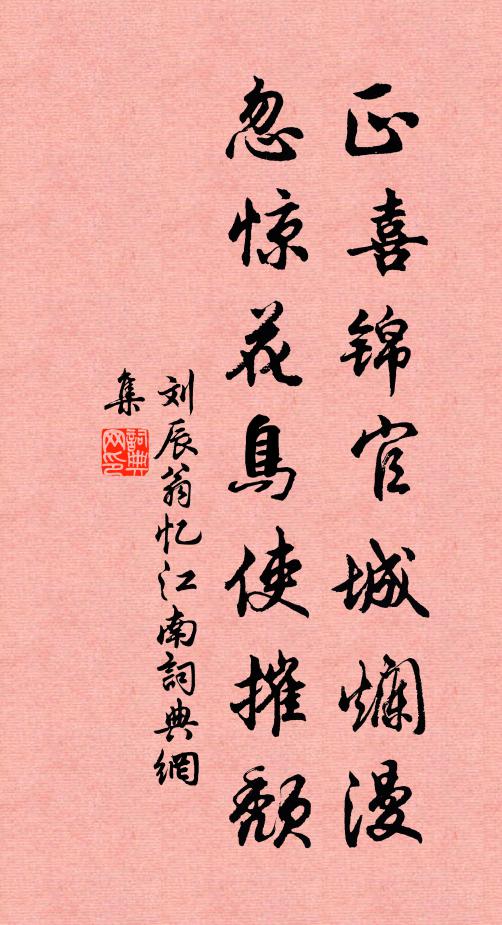 正喜锦官城烂漫
忽惊花鸟使摧颓
刘辰翁忆江南詞典網
集
詞典
网印